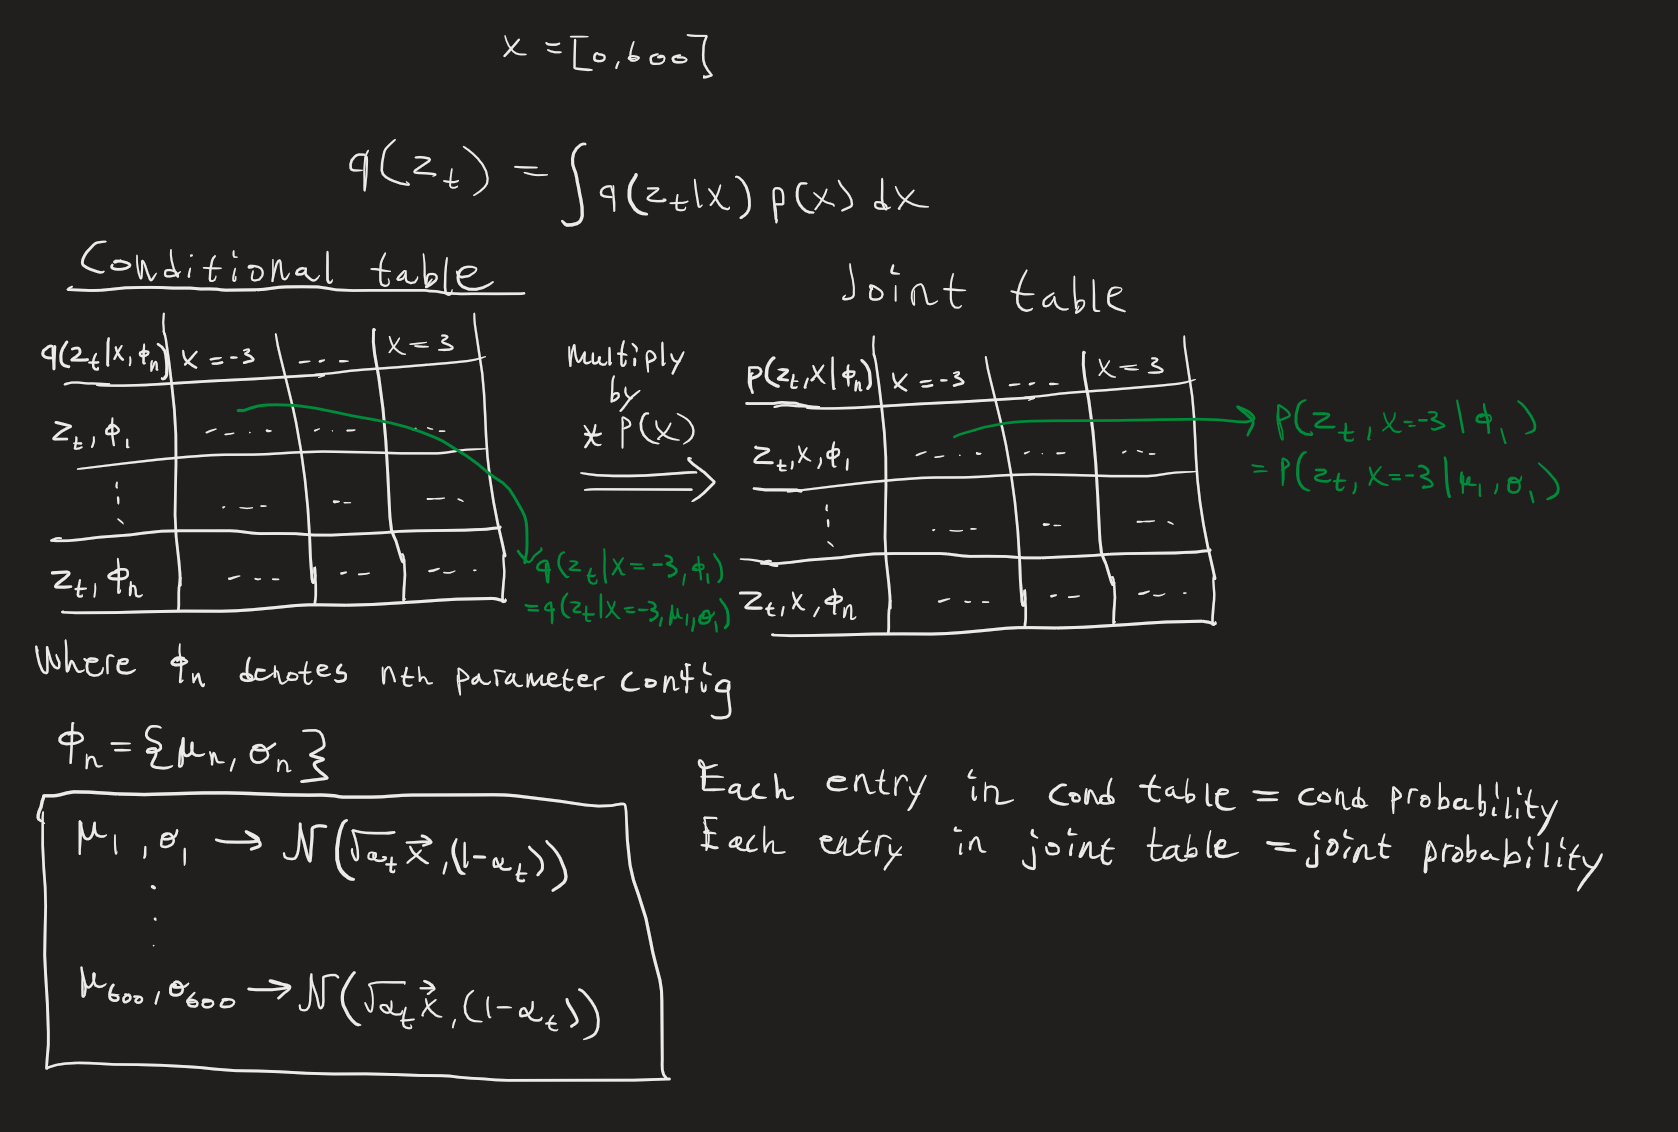 x = [0,600]
q(z_t) = ∫ q(z_t|x) p(x) dx
Conditional table
q(z_t|x, φ_n) x = -3 --- x = 3
z_t, φ_1 ----- --- ---
⋮ ---- -- ---
z_t, φ_n --- -- ---
multiply
by
* P(x)
⟹
q(z_t|x = -3, φ_1)
= q(z_t|x = -3, μ_1, σ_1)
Joint table
p(z_t, x|φ_n) x = -3 ---- x = 3
z_t, x, φ_1 ----- --- ---
⋮ ---- -- ---
z_t, x, φ_n --- -- ---
P(z_t, x = -3 | φ_1)
= P(z_t, x = -3 | μ_1, σ_1)
Where φ_n denotes nth parameter config
φ_n = {μ_n, σ_n}
μ_1, σ_1 → N(√α_t x⃗, (1-α_t))
⋮
μ_600, σ_600 → N(√α_t x⃗, (1-α_t))
Each entry in cond table = cond probability
Each entry in joint table = joint probability